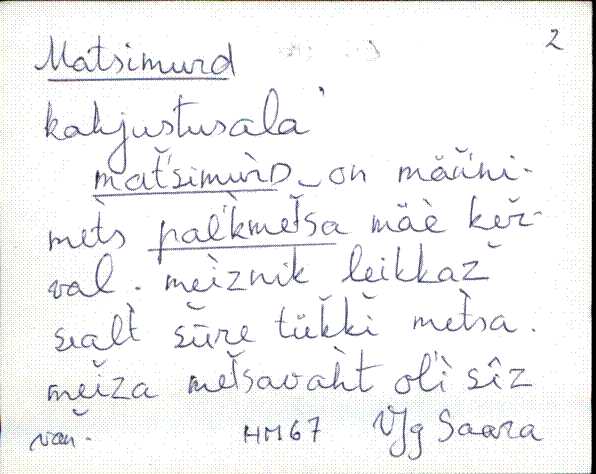 2
Matsimurd
kahjustusala
mat́simùrD on männi-
mèts pal'kmetsa mäè ker̆-
val. mèiznik leikkaž
sealt sūre tükki metsa.
meĭza metsavaht oĺi sîz
vaň.
HM67 VJg Saara